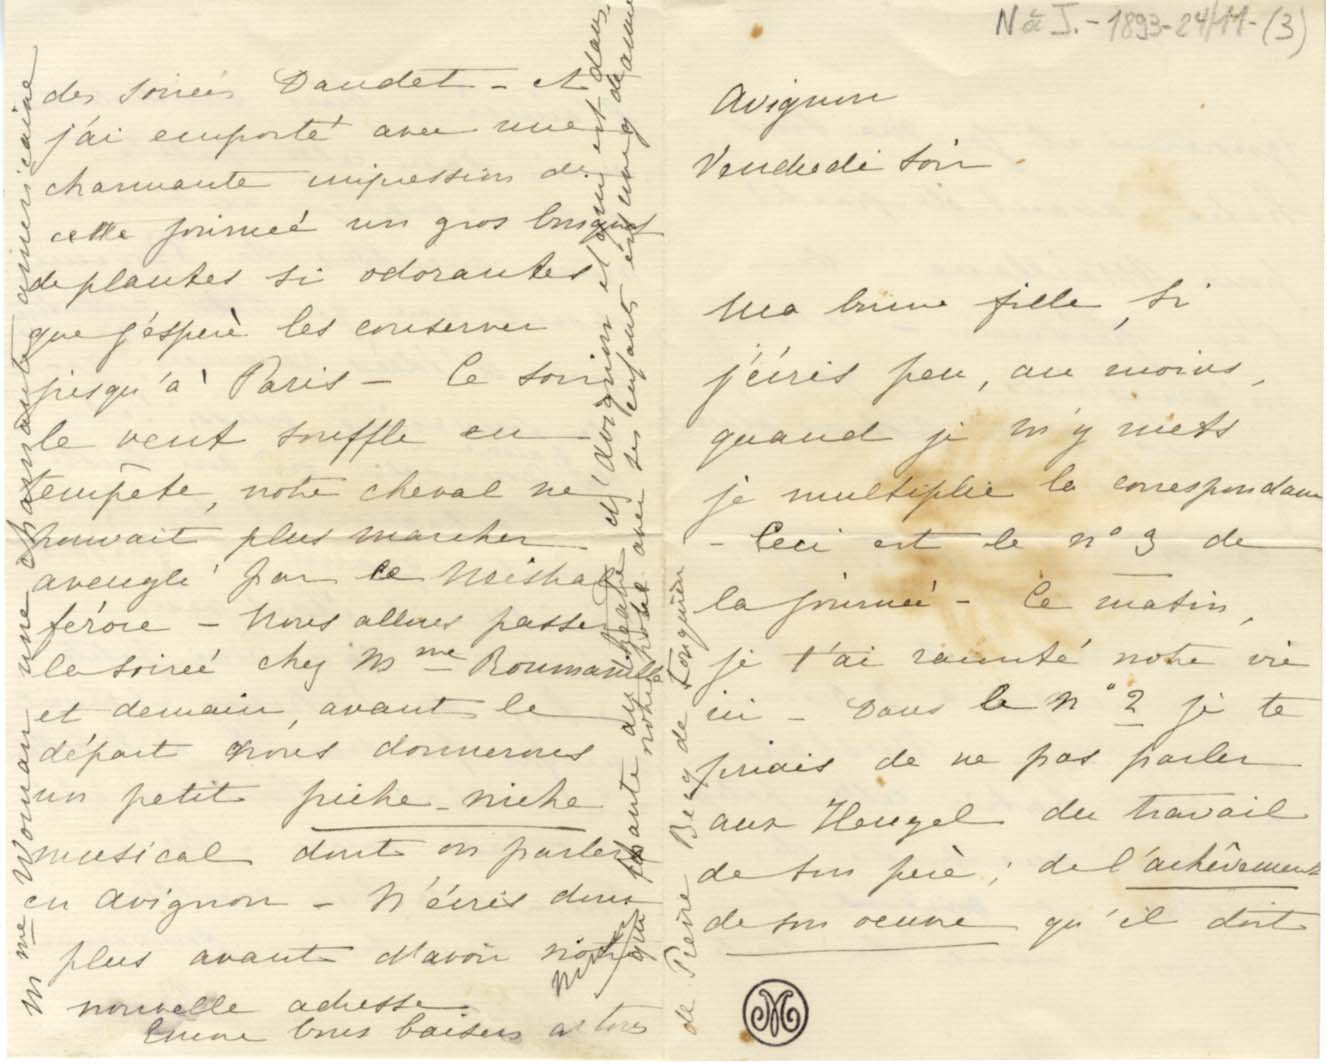 N à J. - 1893-24/11-(3)
Avignon
Vendredi soir
Ma bonne fille, si
j'écris peu, au moins,
quand je m'y mets
je multiplie la correspondance
- Ceci est le n° 3 de
la journée - Ce matin,
je t'ai raconté notre vie
ici - Dans le n° 2 je te
priais de ne pas parler
aux Heugel du travail
de son père; de l'achêvement
de son oeuvre qu'il doit
des soirées Daudet - et
j'ai emporté avec une
charmante impression de
cette journée un gros bouquet
de plantes si odorantes
que j'éspère les conserver
jusqu'à Paris - Ce soir
le vent souffle en
tempête, notre cheval ne
pouvait plus marcher
aveuglé par ce Mistral
féroce - Nous allons passer
la soirée chez Mme Roumanille
et demain, avant le
départ nous donnerons
un petit piche-niche
musical dont on parlera
en Avignon - N'écris donc
plus avant d'avoir notre
nouvelle adresse.
Encore bons baisers à tous
Mme Woman une charmante américaine
qui chante au théatre d'Avignon et qui est dans
notre hotel avec ses enfants est une g de amie
de Pierre Berg de Tonguière